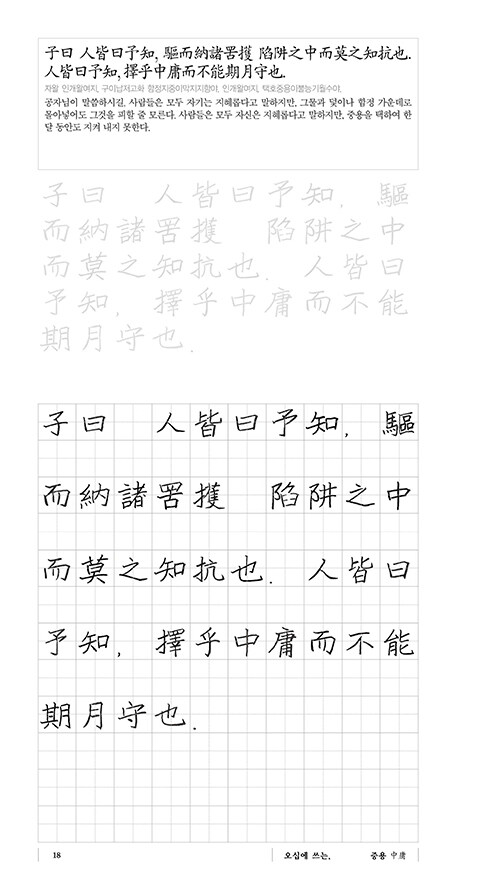 子曰 人皆曰予知, 驅而納諸罟擭 陷阱之中而莫之知抗也.
人皆曰予知, 擇乎中庸而不能期月守也.
자왈 인개왈여지, 구이납저고화 함정지중이막지지항야, 인개왈여지, 택호중용이불능기월수야.
공자님이 말씀하시길, 사람들은 모두 자기는 지혜롭다고 말하지만, 그물과 덫이나 함정 가운데로
몰아넣어도 그것을 피할 줄 모른다. 사람들은 모두 자신은 지혜롭다고 말하지만, 중용을 택하여 한
달 동안도 지켜 내지 못한다.
子曰 人皆曰予知, 驅
而納諸罟擭 陷阱之中
而莫之知抗也. 人皆曰
予知, 擇乎中庸而不能
期月守也.
子曰 人皆曰予知, 驅
而納諸罟擭 陷阱之中
而莫之知抗也. 人皆曰
予知, 擇乎中庸而不能
期月守也.
18 오십에 쓰는, 중용 中庸